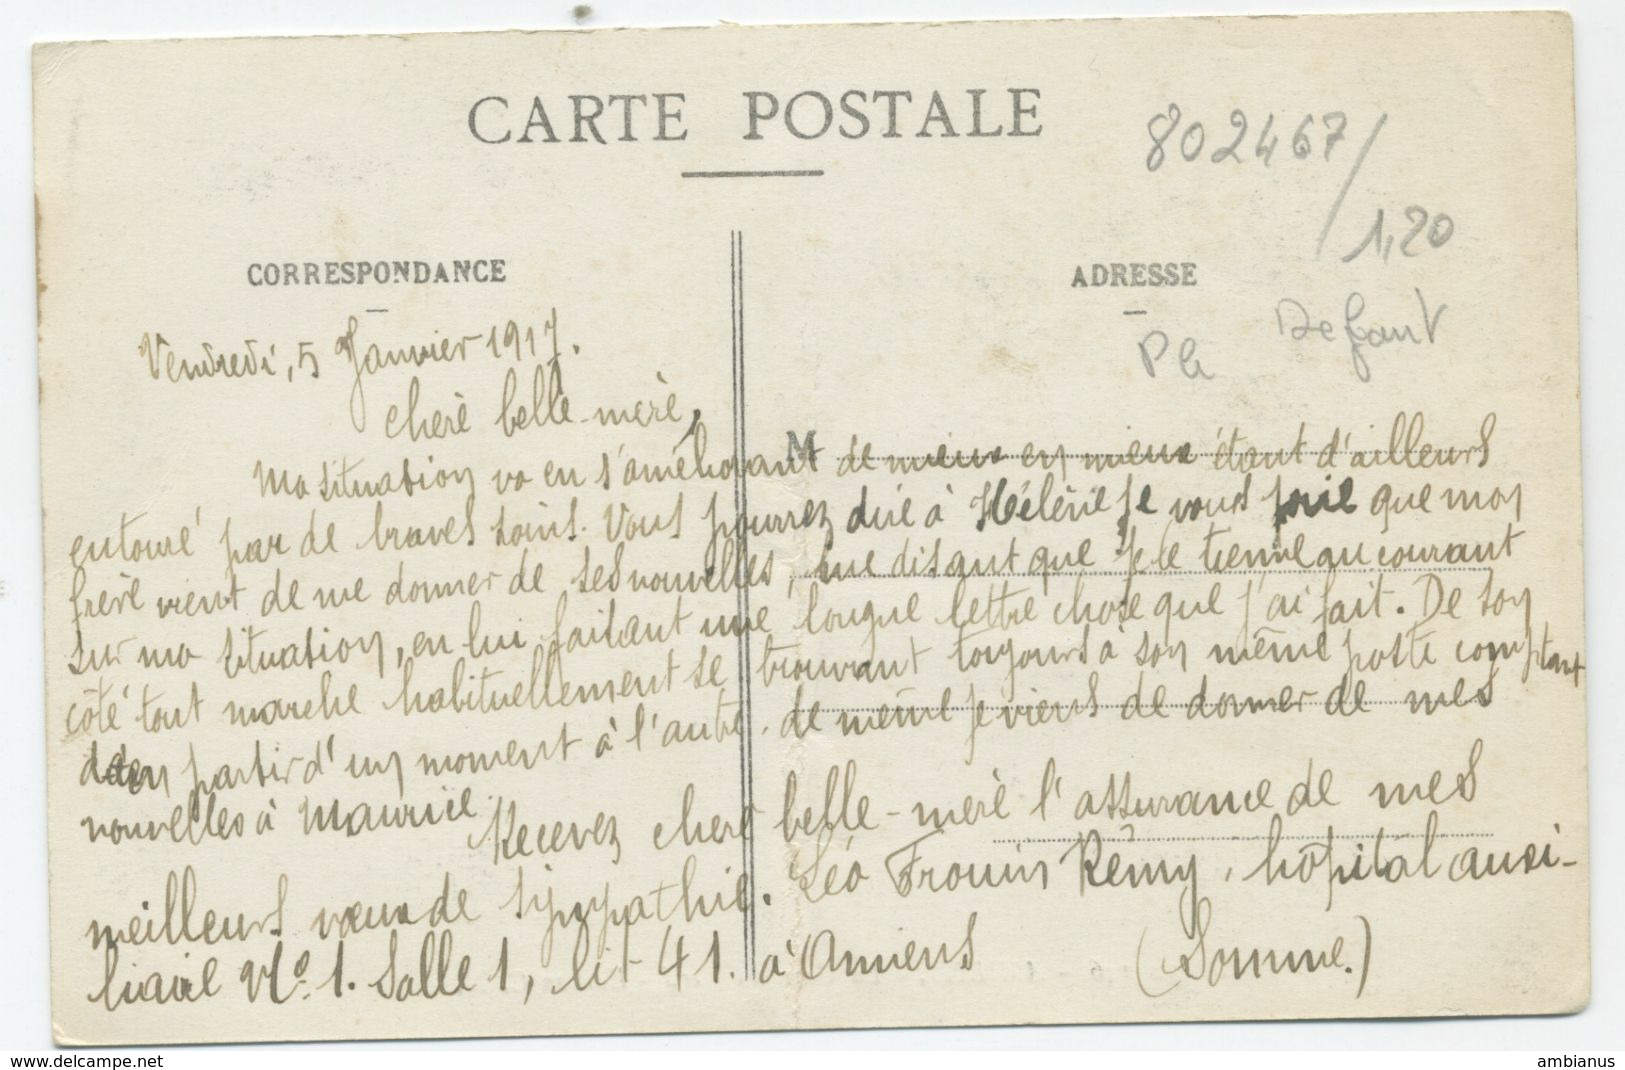 CARTE POSTALE
802467/
1,20
CORRESPONDANCE
ADRESSE
Pli Defaut
Vendredi, 5 Janvier 1917.
Chère belle-mère,
M
Ma situation va en s'améliorant de mieux en mieux étant d'ailleurs
entouré par de braves soins. Vous pourrez dire à Hélène je vous prie que mon
frère vient de me donner de ses nouvelles, me disant que je le tienne au courant
sur ma situation, en lui faisant une longue lettre chose que j'ai fait. De son
côté tout marche habituellement se trouvant toujours à son même poste comptant
d'en partir d'un moment à l'autre. de même je viens de donner de mes
nouvelles à Maurice.
Recevez chère belle-mère l'assurance de mes
meilleurs vœux de sympathie. Léo Frouin Rémy, hôpital auxi-
liaire No. 1. Salle 1, lit 41. à Amiens (Somme.)
www.delcampe.net
ambianus